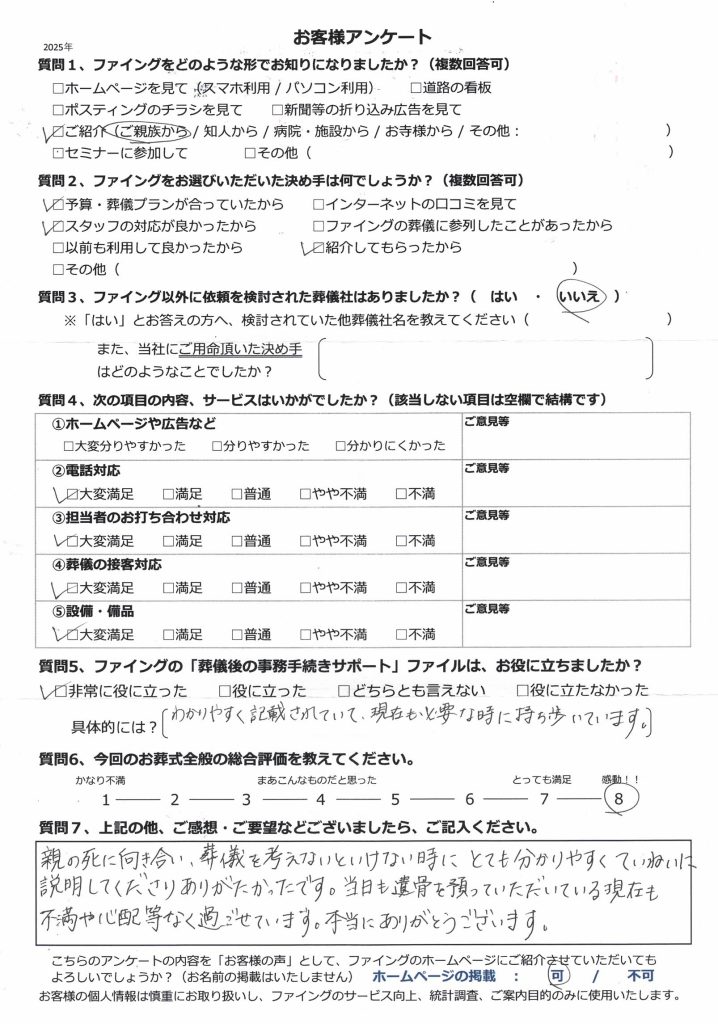 お客様アンケート
2025年
質問１、ファイングをどのような形でお知りになりましたか？（複数回答可）
□ホームページを見て（スマホ利用 / パソコン利用） □道路の看板
□ポスティングのチラシを見て □新聞等の折り込み広告を見て
☑ご紹介（ご親族から / 知人から / 病院・施設から / お寺様から / その他： ）
□セミナーに参加して □その他（ ）
質問２、ファイングをお選びいただいた決め手は何でしょうか？（複数回答可）
☑予算・葬儀プランが合っていたから □インターネットの口コミを見て
☑スタッフの対応が良かったから □ファイングの葬儀に参列したことがあったから
□以前も利用して良かったから ☑紹介してもらったから
□その他（ ）
質問３、ファイング以外に依頼を検討された葬儀社はありましたか？（ はい ・ いいえ ）
※「はい」とお答えの方へ、検討されていた他葬儀社名を教えてください（ ）
また、当社にご用命頂いた決め手
はどのようなことでしたか？
質問４、次の項目の内容、サービスはいかがでしたか？（該当しない項目は空欄で結構です）
①ホームページや広告など ご意見等
□大変分りやすかった □分りやすかった □分かりにくかった
②電話対応 ご意見等
☑大変満足 □満足 □普通 □やや不満 □不満
③担当者のお打ち合わせ対応 ご意見等
☑大変満足 □満足 □普通 □やや不満 □不満
④葬儀の接客対応 ご意見等
☑大変満足 □満足 □普通 □やや不満 □不満
⑤設備・備品 ご意見等
☑大変満足 □満足 □普通 □やや不満 □不満
質問5、ファイングの「葬儀後の事務手続きサポート」ファイルは、お役に立ちましたか？
☑非常に役に立った □役に立った □どちらとも言えない □役に立たなかった
具体的には？（わかりやすく記載されていて、現在も必要な時に持ち歩いています。）
質問6、今回のお葬式全般の総合評価を教えてください。
かなり不満 まあこんなものだと思った とっても満足 感動！！
1 ― 2 ― 3 ― 4 ― 5 ― 6 ― 7 ― 8
質問７、上記の他、ご感想・ご要望などございましたら、ご記入ください。
親の死に向き合い、葬儀を考えないといけない時に とても分かりやすく ていねいに
説明してくださりありがたかったです。当日も遺骨を預っていただいている現在も
不満や心配等なく過ごせています。本当にありがとうございます。
こちらのアンケートの内容を「お客様の声」として、ファイングのホームページにご紹介させていただいても
よろしいでしょうか？（お名前の掲載はいたしません） ホームページの掲載 ： 可 / 不可
お客様の個人情報は慎重にお取り扱いし、ファイングのサービス向上、統計調査、ご案内目的のみに使用いたします。